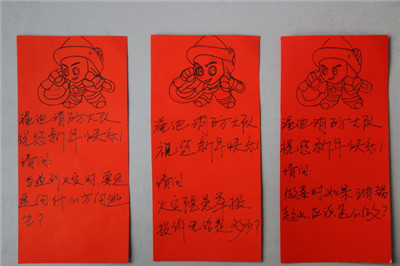 渑池消防大队
祝您新年快乐!
请问:
当遇到火灾时,要迅
速用什么方向逃
生?
渑池消防大队
祝您新年快乐!
请问:
火灾隐患举报
投诉电话是多少?
渑池消防大队
祝您新年快乐!
请问:
做菜时如果油锅
起火,应该怎么做?